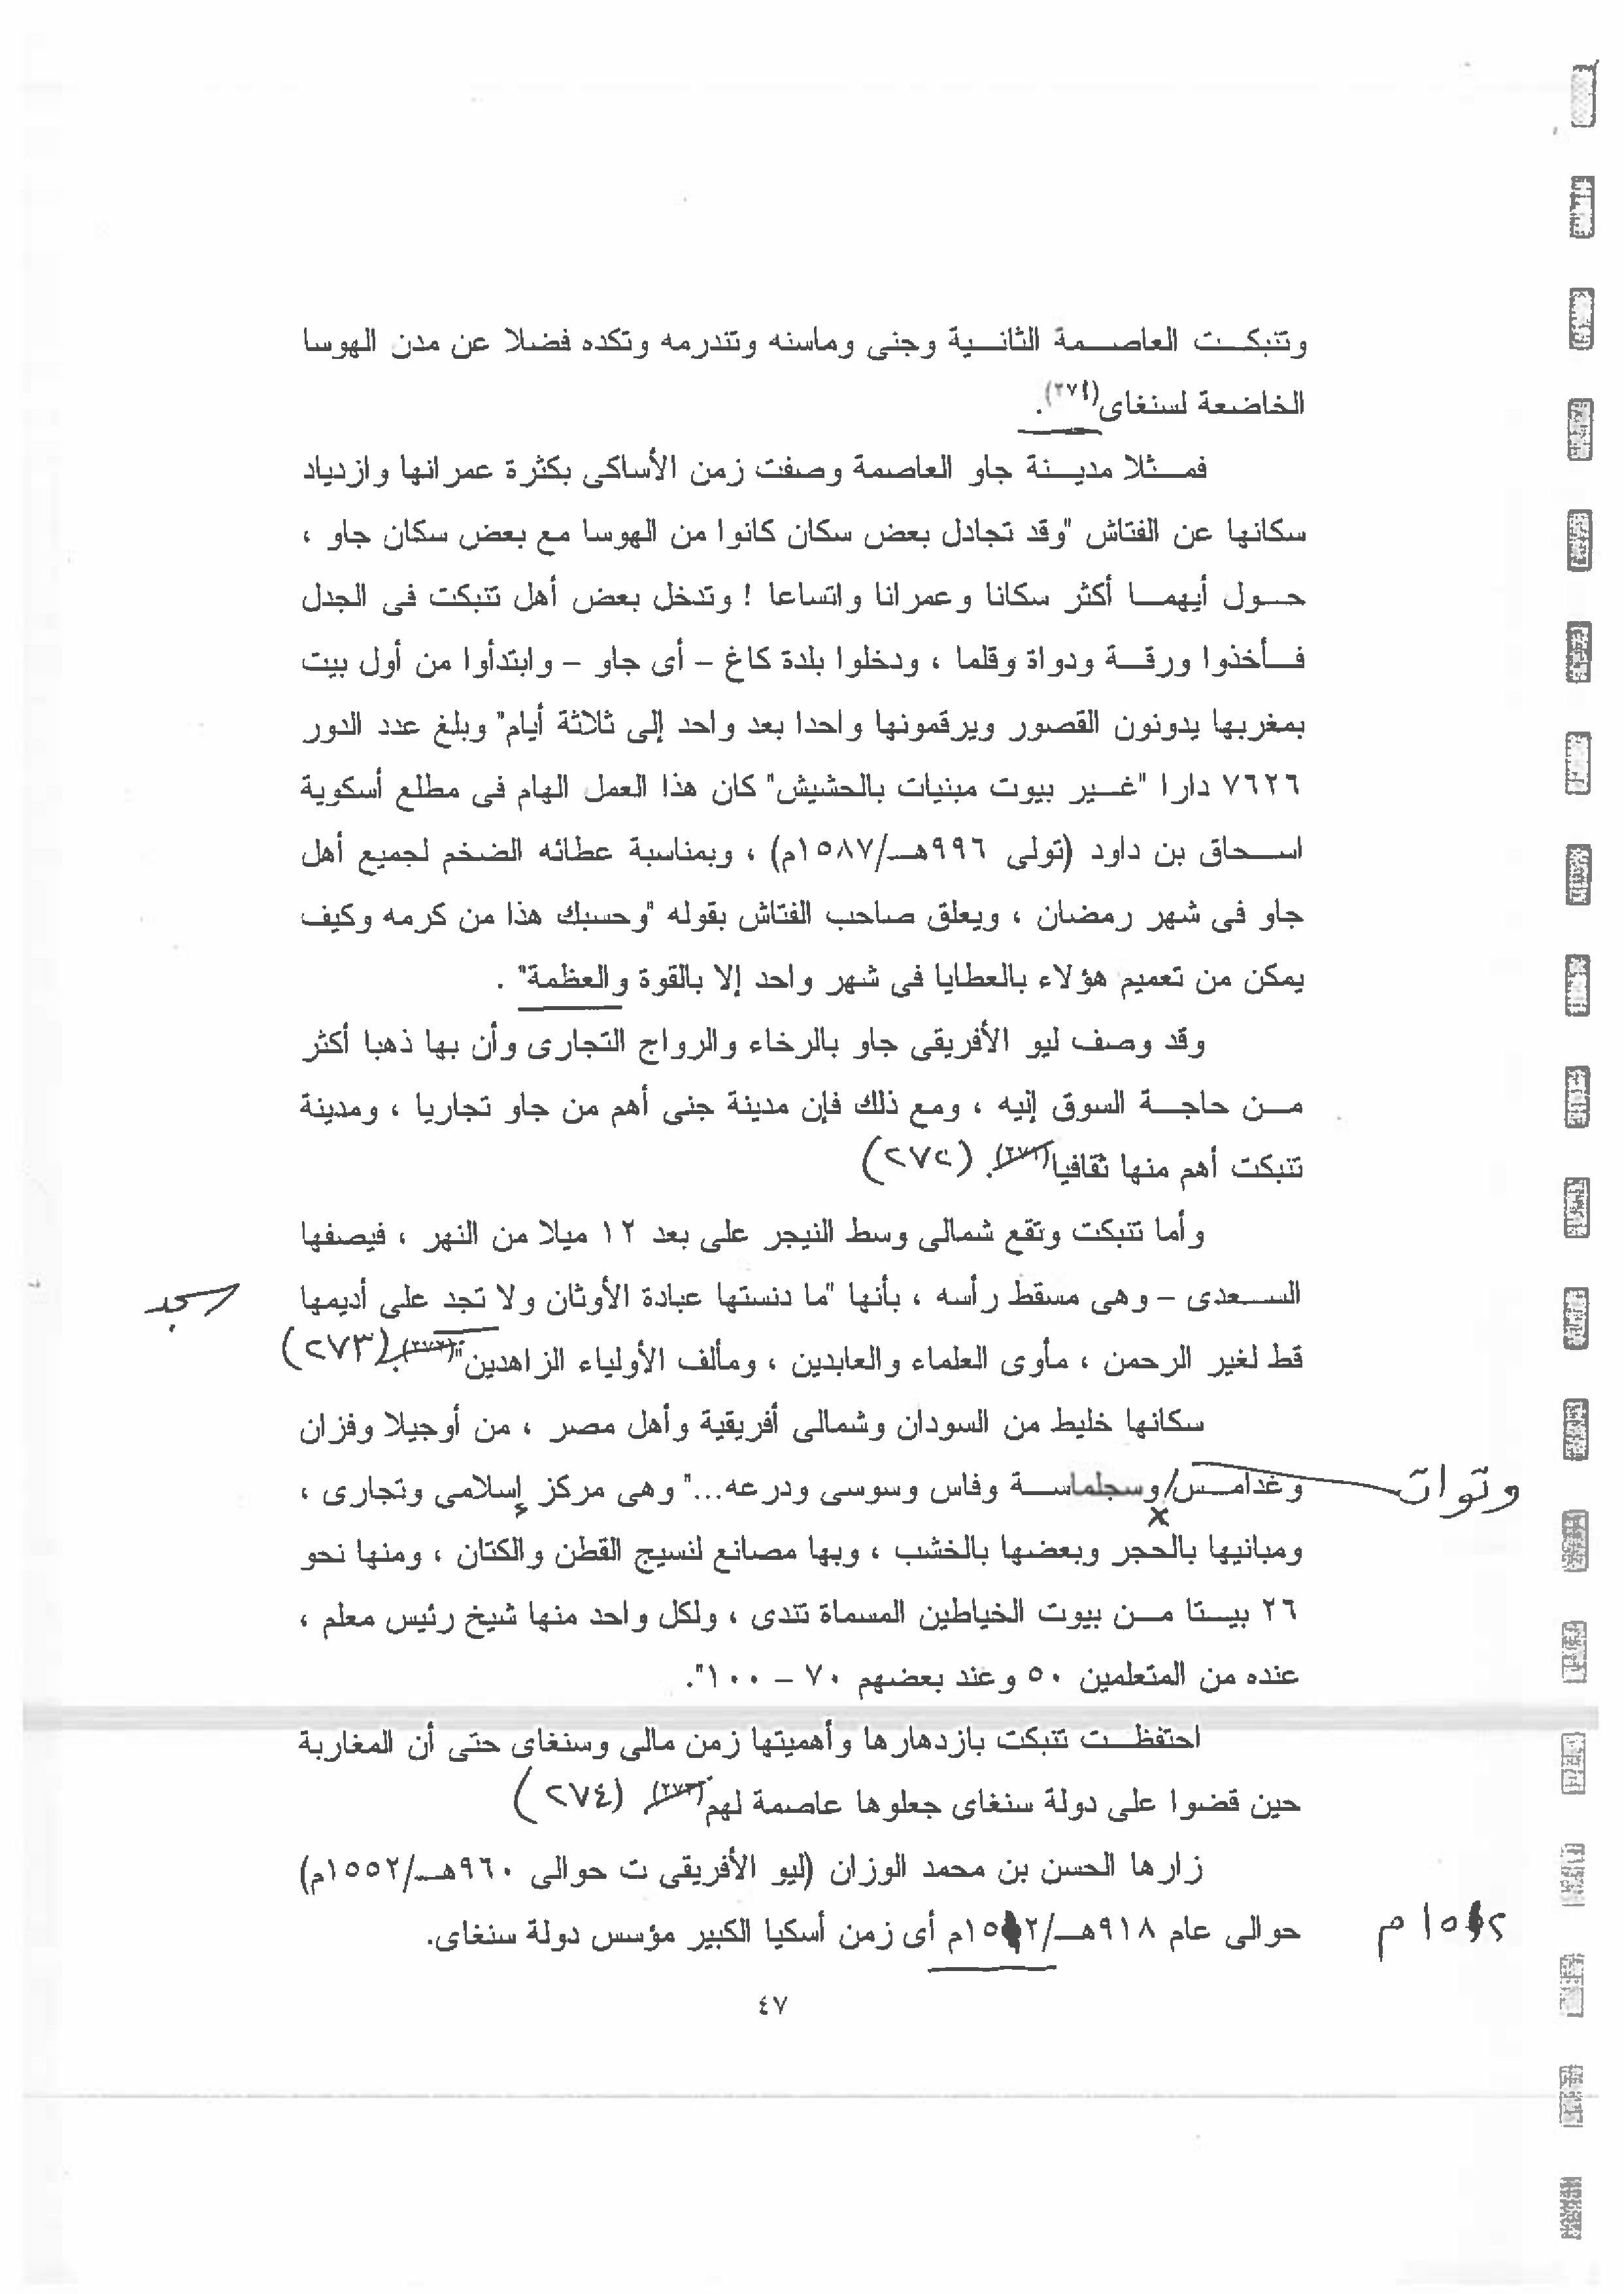 وتنبكت العاصمة الثانية وجنى وماسنه وتندرمه وتكده فضلا عن مدن الهوسا
الخاضعة لسنغاى(٢٧١).
فمثلا مدينة جاو العاصمة وصفت زمن الأساكى بكثرة عمرانها وازدياد
سكانها عن الفتاش "وقد تجادل بعض سكان كانوا من الهوسا مع بعض سكان جاو ،
حول أيهما أكثر سكانا وعمرانا واتساعا ! وتدخل بعض أهل تنبكت فى الجدل
فأخذوا ورقة ودواة وقلما ، ودخلوا بلدة كاغ – أى جاو – وابتدأوا من أول بيت
بمغربها يدونون القصور ويرقمونها واحدا بعد واحد إلى ثلاثة أيام" وبلغ عدد الدور
٧٦٢٦ دارا "غير بيوت مبنيات بالحشيش" كان هذا العمل الهام فى مطلع أسكوية
اسحاق بن داود (تولى ٩٩٦هـ/١٥٨٧م) ، وبمناسبة عطائه الضخم لجميع أهل
جاو فى شهر رمضان ، ويعلق صاحب الفتاش بقوله "وحسبك هذا من كرمه وكيف
يمكن من تعميم هؤلاء بالعطايا فى شهر واحد إلا بالقوة والعظمة" .
وقد وصف ليو الأفريقى جاو بالرخاء والرواج التجارى وأن بها ذهبا أكثر
من حاجة السوق إليه ، ومع ذلك فإن مدينة جنى أهم من جاو تجاريا ، ومدينة
تنبكت أهم منها ثقافيا(٢٧١). (٢٧٢)
وأما تنبكت وتقع شمالى وسط النيجر على بعد ١٢ ميلا من النهر ، فيصفها
السعدى – وهى مسقط رأسه ، بأنها "ما دنستها عبادة الأوثان ولا تجد على أديمها سجد
قط لغير الرحمن ، مأوى العلماء والعابدين ، ومألف الأولياء الزاهدين"(٢٧٢). (٢٧٣)
سكانها خليط من السودان وشمالى أفريقية وأهل مصر ، من أوجيلا وفزان
وغدامس/وسجلماسة وفاس وسوسى ودرعه..." وهى مركز إسلامى وتجارى ، وتوات
ومبانيها بالحجر وبعضها بالخشب ، وبها مصانع لنسيج القطن والكتان ، ومنها نحو
٢٦ بيتا من بيوت الخياطين المسماة تندى ، ولكل واحد منها شيخ رئيس معلم ،
عنده من المتعلمين ٥٠ وعند بعضهم ٧٠ – ١٠٠".
احتفظت تنبكت بازدهارها وأهميتها زمن مالى وسنغاى حتى أن المغاربة
حين قضوا على دولة سنغاى جعلوها عاصمة لهم(٢٧٣). (٢٧٤)
زارها الحسن بن محمد الوزان (ليو الأفريقى ت حوالى ٩٦٠هـ/١٥٥٢م)
حوالى عام ٩١٨هـ/١٥١٢م أى زمن أسكيا الكبير مؤسس دولة سنغاى. ١٥١٢م
٤٧